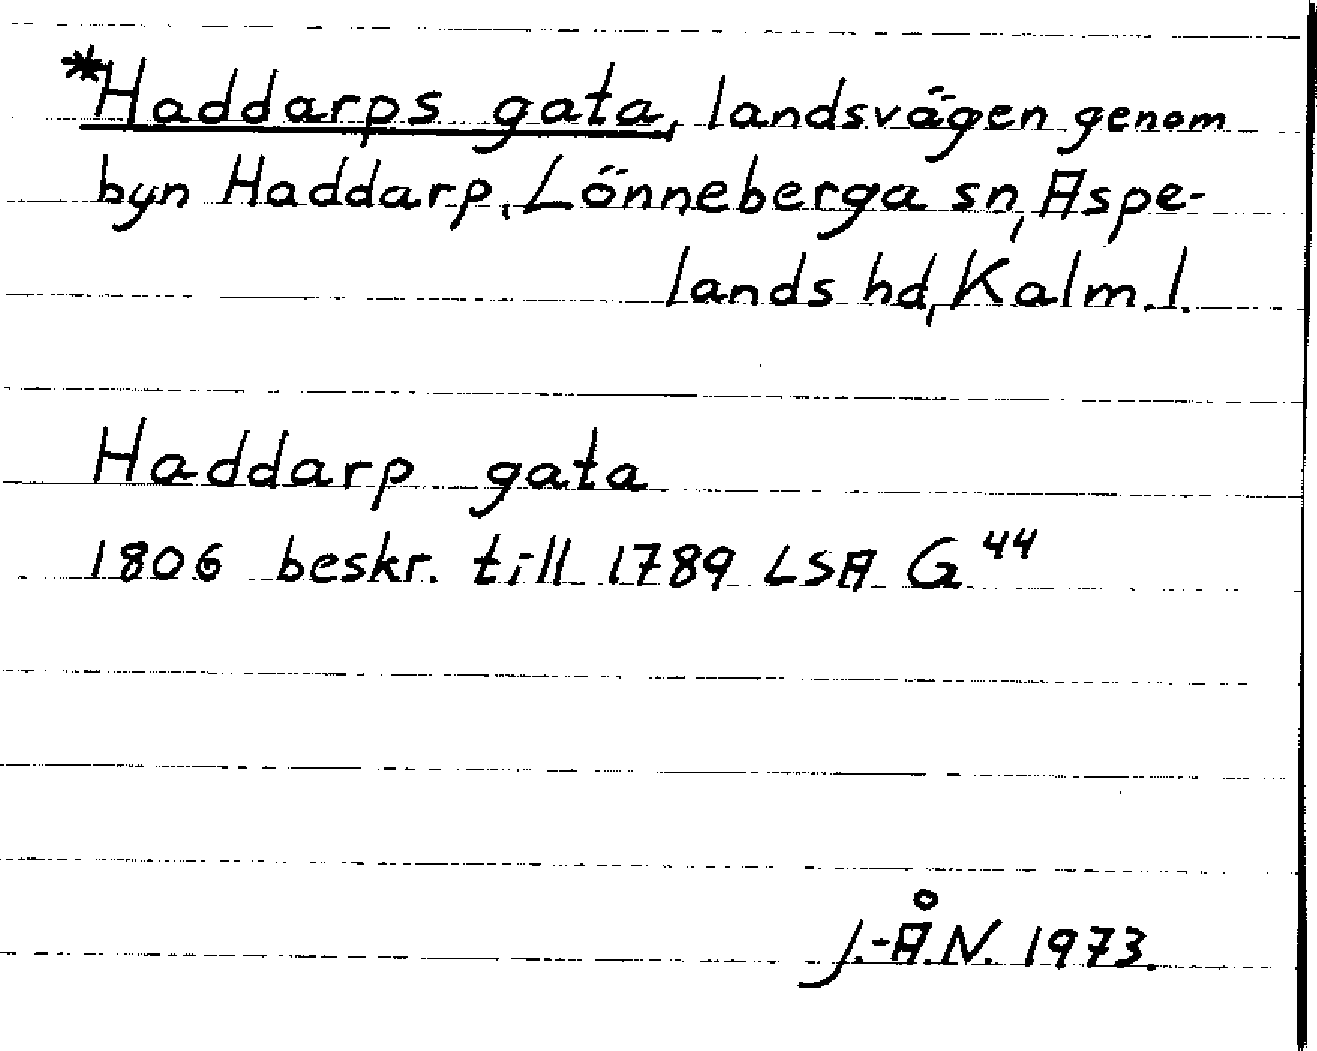 *Haddarps gata, landsvägen genom
byn Haddarp, Lönneberga sn, Aspe-
lands hd, Kalm. l.
Haddarp gata
1806 beskr. till 1789 LSA G 44
J.-Å.N. 1973.